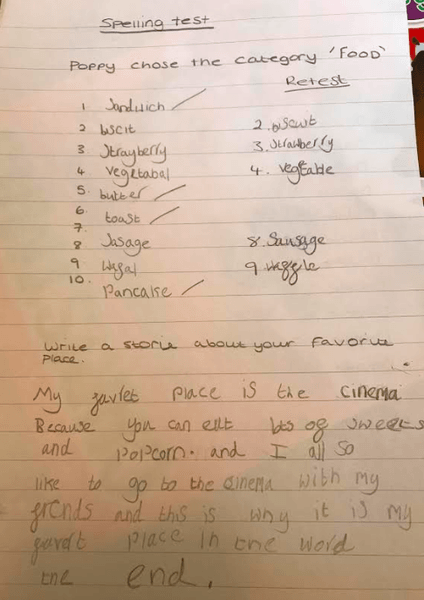 Spelling test
Poppy chose the category 'FOOD'
Retest
1 Sandwich
2 biscit 2. biscuit
3 Strayberry 3. Strawberry
4. vegetabal 4. vegetable
5. butter
6. toast
7.
8 Sasage 8. Sausage
9 9
10. Pancake
Write a storie about your favorite
place.
My favlet place is the cinema
Because you can eat lots of sweets
and popcorn. and I all so
like to go to the cinema with my
frends and this is why it is my
place in the word
the end.